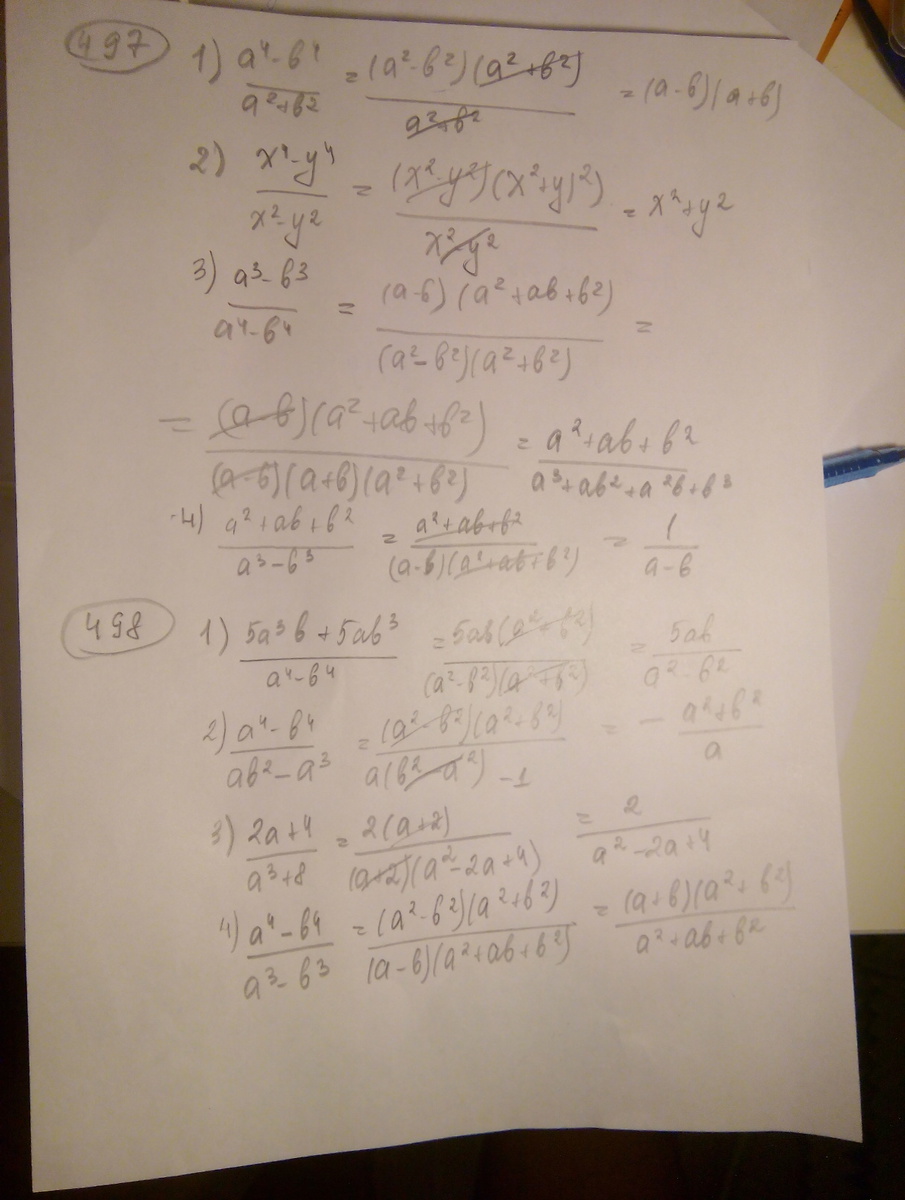 497 1) (a⁴-b⁴)/(a²+b²) = (a²-b²)(a²+b²)/(a²+b²) = (a-b)(a+b)
2) (x⁴-y⁴)/(x²-y²) = (x²-y²)(x²+y)²)/(x²-y²) = x²+y²
3) (a³-b³)/(a⁴-b⁴) = (a-b)(a²+ab+b²)/(a²-b²)(a²+b²) =
= (a-b)(a²+ab+b²)/(a-b)(a+b)(a²+b²) = (a²+ab+b²)/(a³+ab²+a²b+b³)
4) (a²+ab+b²)/(a³-b³) = (a²+ab+b²)/(a-b)(a²+ab+b²) = 1/(a-b)
498 1) (5a³b+5ab³)/(a⁴-b⁴) = 5ab(a²+b²)/(a²-b²)(a²+b²) = 5ab/(a²-b²)
2) (a⁴-b⁴)/(ab²-a³) = (a²-b²)(a²+b²)/a(b²-a²) -1 = - (a²+b²)/a
3) (2a+4)/(a³+8) = 2(a+2)/(a+2)(a²-2a+4) = 2/(a²-2a+4)
4) (a⁴-b⁴)/(a³-b³) = (a²-b²)(a²+b²)/(a-b)(a²+ab+b²) = (a+b)(a²+b²)/(a²+ab+b²)